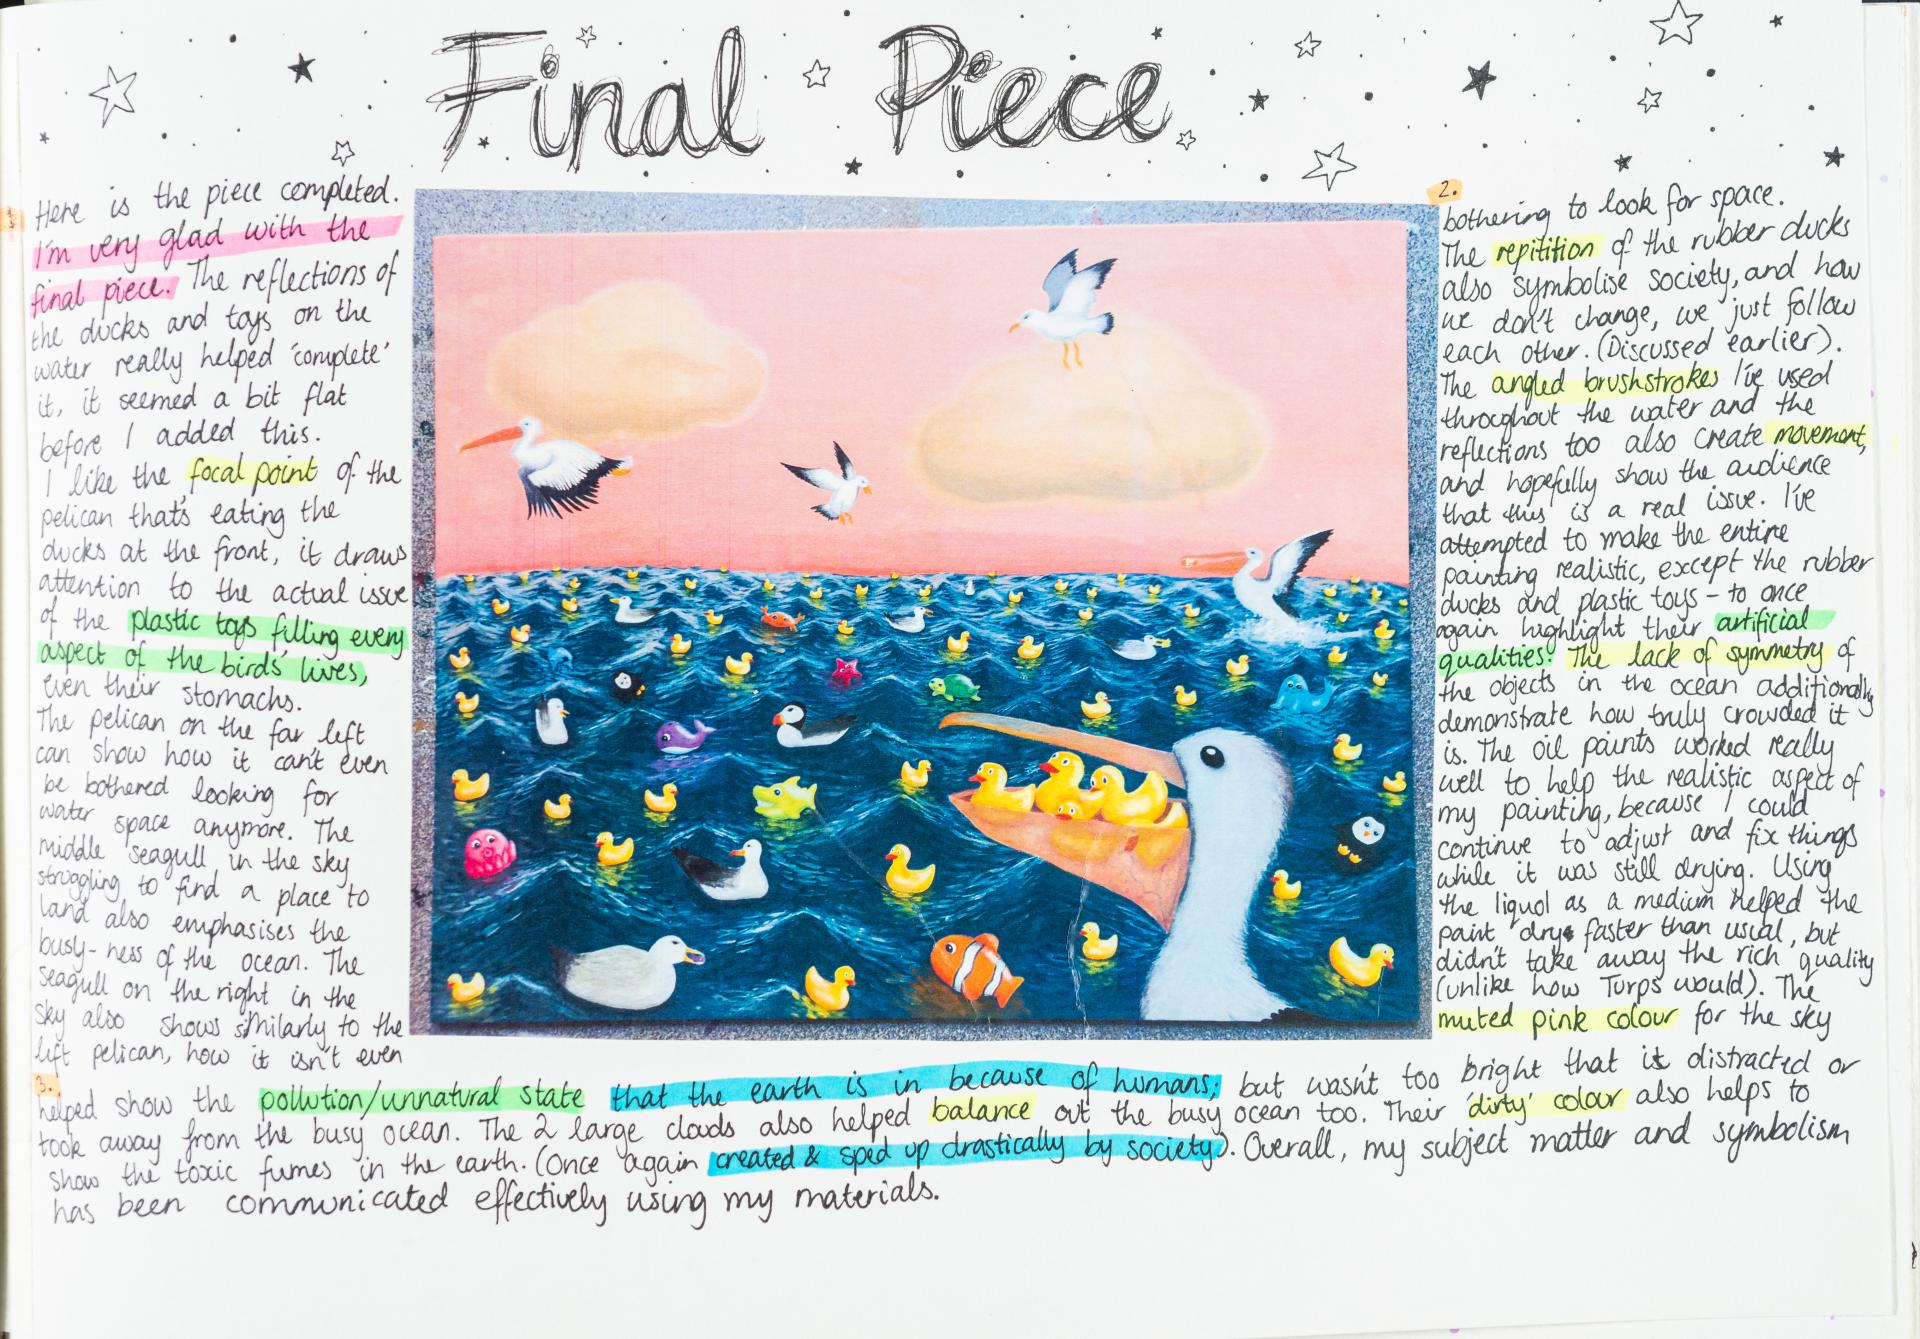 Final Piece
Here is the piece completed.
I'm very glad with the
final piece. The reflections of
the ducks and toys on the
water really helped 'complete'
it, it seemed a bit flat
before I added this.
I like the focal point of the
pelican that's eating the
ducks at the front, it draws
attention to the actual issue
of the plastic toys filling every
aspect of the birds' lives,
even their stomachs.
The pelican on the far left
can show how it can't even
be bothered looking for
water space anymore. The
middle seagull in the sky
struggling to find a place to
land also emphasises the
busy-ness of the ocean. The
seagull on the right in the
sky also shows similarly to the
left pelican, how it isn't even
2.
bothering to look for space.
The repitition of the rubber ducks
also symbolise society, and how
we don't change, we just follow
each other. (Discussed earlier).
The angled brushstrokes I've used
throughout the water and the
reflections too also create movement,
and hopefully show the audience
that this is a real issue. I've
attempted to make the entire
painting realistic, except the rubber
ducks and plastic toys - to once
again highlight their artificial
qualities. The lack of symmetry of
the objects in the ocean additionally
demonstrate how truly crowded it
is. The oil paints worked really
well to help the realistic aspect of
my painting, because I could
continue to adjust and fix things
while it was still drying. Using
the liquol as a medium helped the
paint dry faster than usual, but
didn't take away the rich quality
(unlike how Turps would). The
muted pink colour for the sky
3.
helped show the pollution/unnatural state that the earth is in because of humans; but wasn't too bright that it distracted or
took away from the busy ocean. The 2 large clouds also helped balance out the busy ocean too. Their 'dirty' colour also helps to
show the toxic fumes in the earth. (Once again created & sped up drastically by society). Overall, my subject matter and symbolism
has been communicated effectively using my materials.